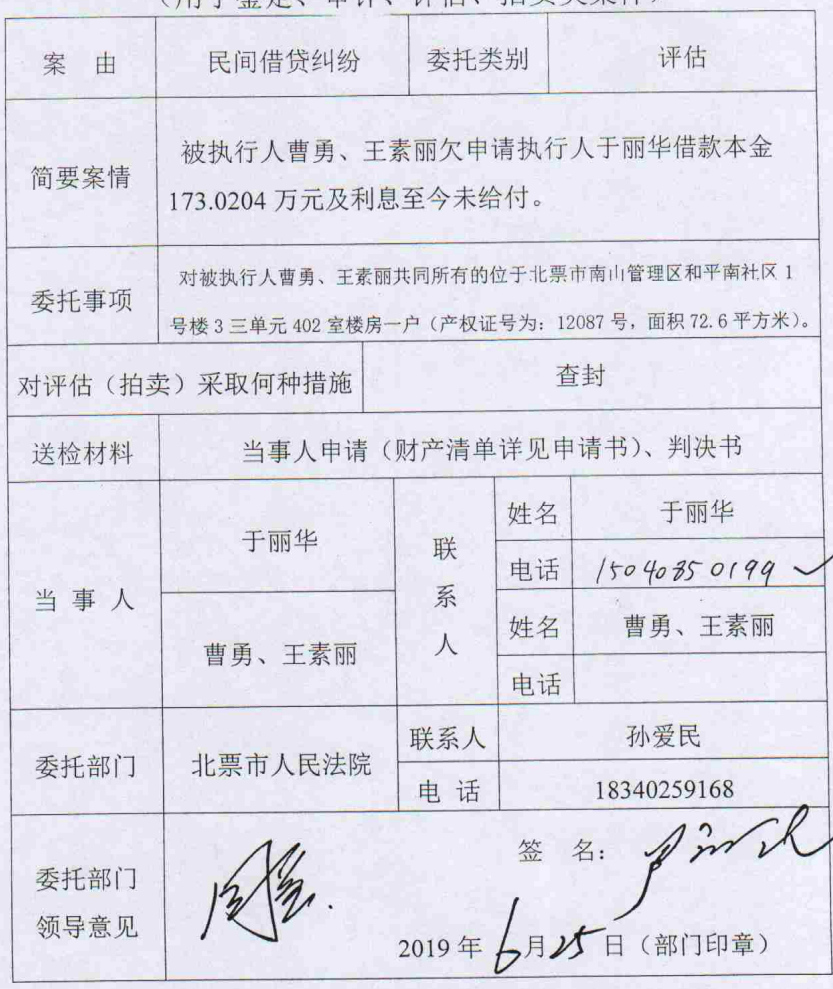 （用于鉴定、审计、评估、拍卖类案件）
案 由 民间借贷纠纷 委托类别 评估
简要案情 被执行人曹勇、王素丽欠申请执行人于丽华借款本金
173.0204 万元及利息至今未给付。
委托事项 对被执行人曹勇、王素丽共同所有的位于北票市南山管理区和平南社区 1
号楼 3 三单元 402 室楼房一户（产权证号为：12087 号，面积 72.6 平方米）。
对评估（拍卖）采取何种措施 查封
送检材料 当事人申请（财产清单详见申请书）、判决书
当 事 人 于丽华 联系人 姓名 于丽华
电话 15040850199
曹勇、王素丽 姓名 曹勇、王素丽
电话
委托部门 北票市人民法院 联系人 孙爱民
电 话 18340259168
委托部门
领导意见
签 名：
2019 年 6 月 25 日（部门印章）